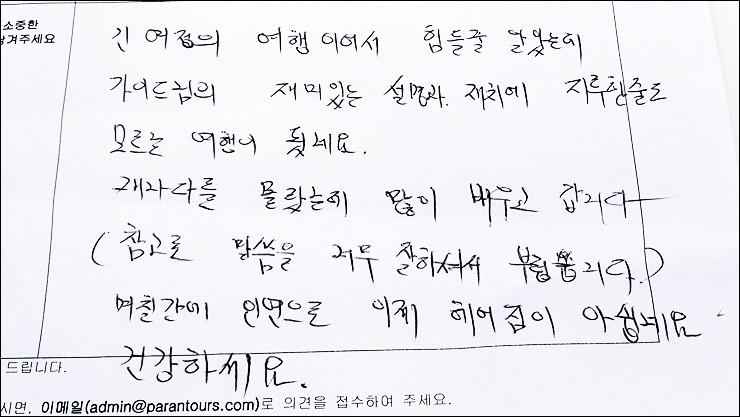 소중한
남겨주세요
긴 여정의 여행이어서 힘들줄 알았는데
가이드님의 재미있는 설명과 재치에 지루한줄도
모르는 여행이 됬네요.
캐나다를 몰랐는데 많이 배우고 갑니다
(참고로 말씀을 너무 잘하셔서 부럽습니다.)
며칠간에 인연으로 이제 헤어짐이 아쉽네요
건강하세요.
드립니다.
시면, 이메일(admin@parantours.com)로 의견을 접수하여 주세요.